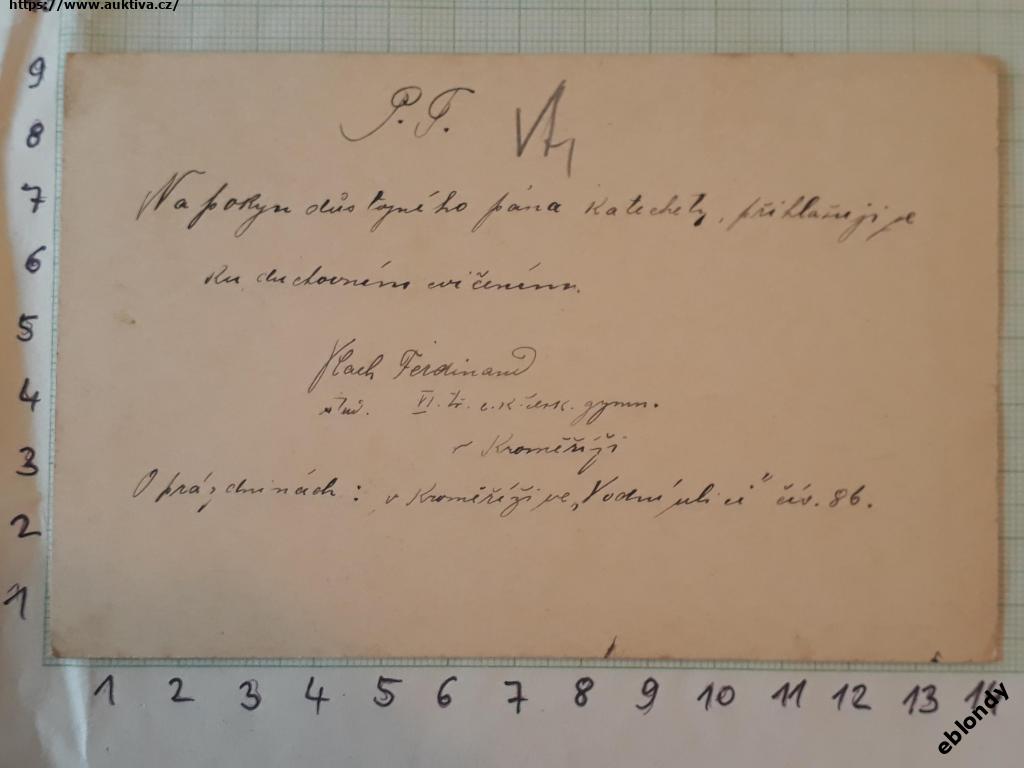 https://www.auktiva.cz/
P. T.
Na pokyn důstojného pána katechety, přihlašuji se
ku duchovním cvičením.
Vlach Ferdinand
stud. VI. tř. c. k. česk. gymn.
v Kroměříži
O prázdninách: v Kroměříži ve „Vodní ulici“ čís. 86.
9
8
7
6
5
4
3
2
1
1 2 3 4 5 6 7 8 9 10 11 12 13 14
eblondy